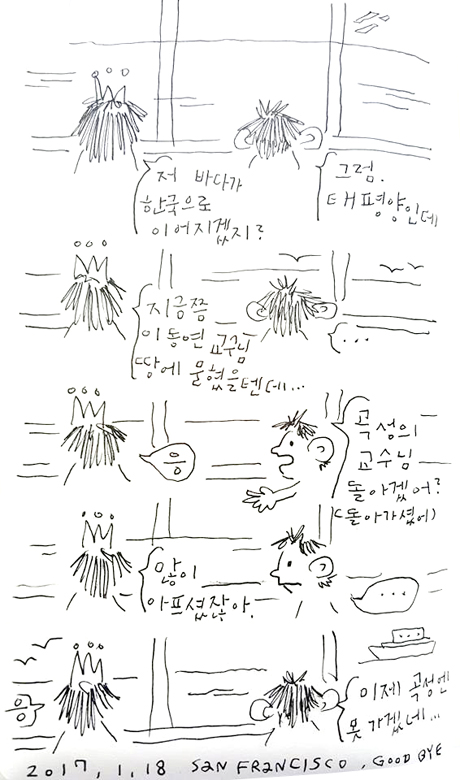 저 바다가
한국으로
이어지겠지?
그럼.
태평양인데
지금쯤
이동연 교수님
땅에 묻혔을텐데...
...
응
곡성의
교수님
돌아겠어?
(돌아가셨어)
많이
아프셨잖아.
...
응
이제 곡성엔
못 가겠네...
2017, 1, 18 SAN FRANCISCO, GOOD BYE